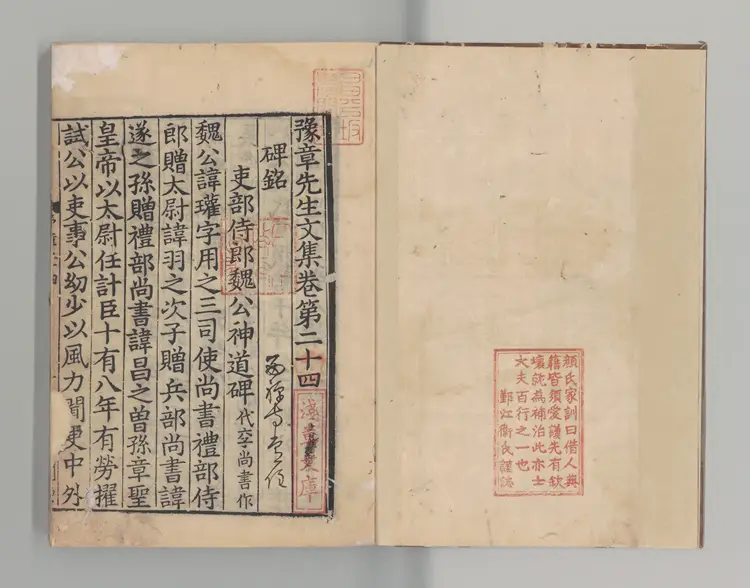 顏氏家訓曰借人典
籍皆須愛護先有缺
壞就為補治此亦士
大夫百行之一也
鄞江衞氏謹誌
豫章先生文集卷第二十四
淺草文庫
碑銘
吏部侍郎魏公神道碑代李尚書作
魏公諱瓘字用之三司使尚書禮部侍
郎贈太尉諱羽之次子贈兵部尚書諱
遂之孫贈禮部尚書諱昌之曾孫章聖
皇帝以太尉任計臣十有八年有勞擢
試公以吏事公幼少以風力聞更中外